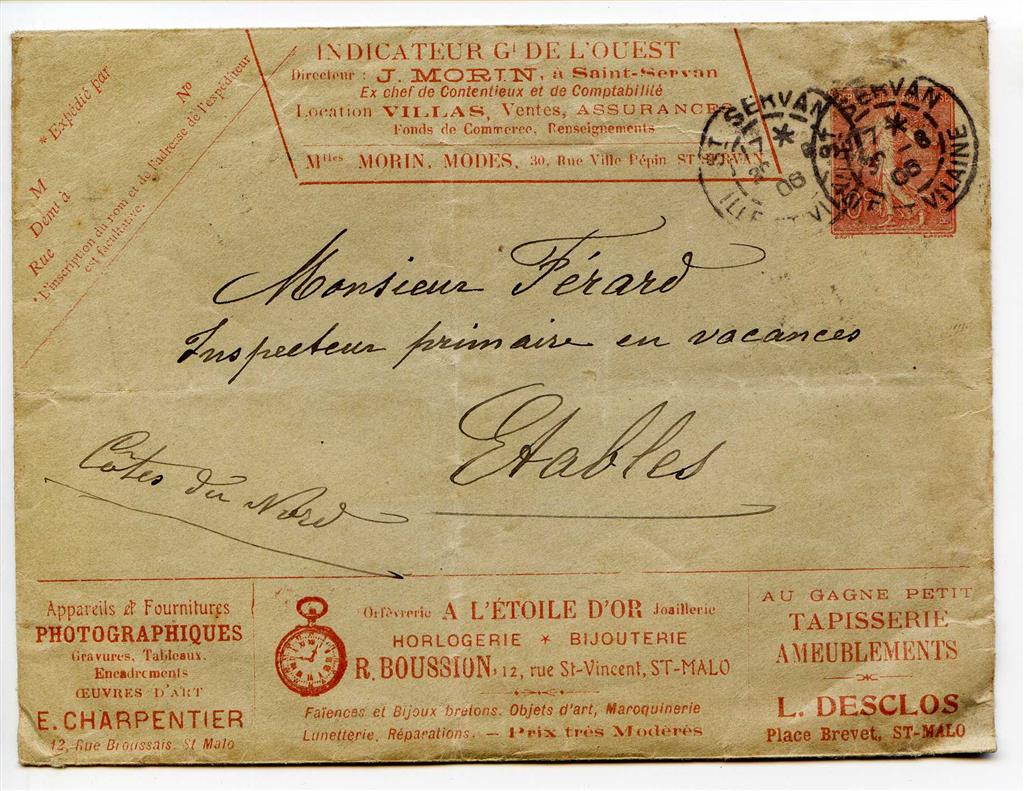 INDICATEUR Gl DE L'OUEST
Directeur : J. MORIN, à Saint-Servan
Ex chef de Contentieux et de Comptabilité
Location VILLAS, Ventes, ASSURANCE
Fonds de Commerce, Renseignements
Mlles MORIN, MODES, 30, Rue Ville Pépin ST-SERVAN
* Expédié par
M
Demt à
Rue
No
* L'inscription du nom et de l'adresse de l'expéditeur
est facultative.
ST SERVAN
ILLE ET VILAINE
08
ST SERVAN
08
VILAINE
10
Monsieur Férard
Inspecteur primaire en vacances
Etables
Côtes du Nord
Appareils et Fournitures
PHOTOGRAPHIQUES
Gravures, Tableaux.
Encadrements
ŒUVRES D'ART
E. CHARPENTIER
12, Rue Broussais, St Malo
Orfèvrerie A L'ÉTOILE D'OR Joaillerie
HORLOGERIE * BIJOUTERIE
R. BOUSSION, 12, rue St-Vincent, ST-MALO
Faïences et Bijoux bretons. Objets d'art, Maroquinerie
Lunetterie, Réparations. — Prix très Modérés
AU GAGNE PETIT
TAPISSERIE
AMEUBLEMENTS
L. DESCLOS
Place Brevet, ST-MALO